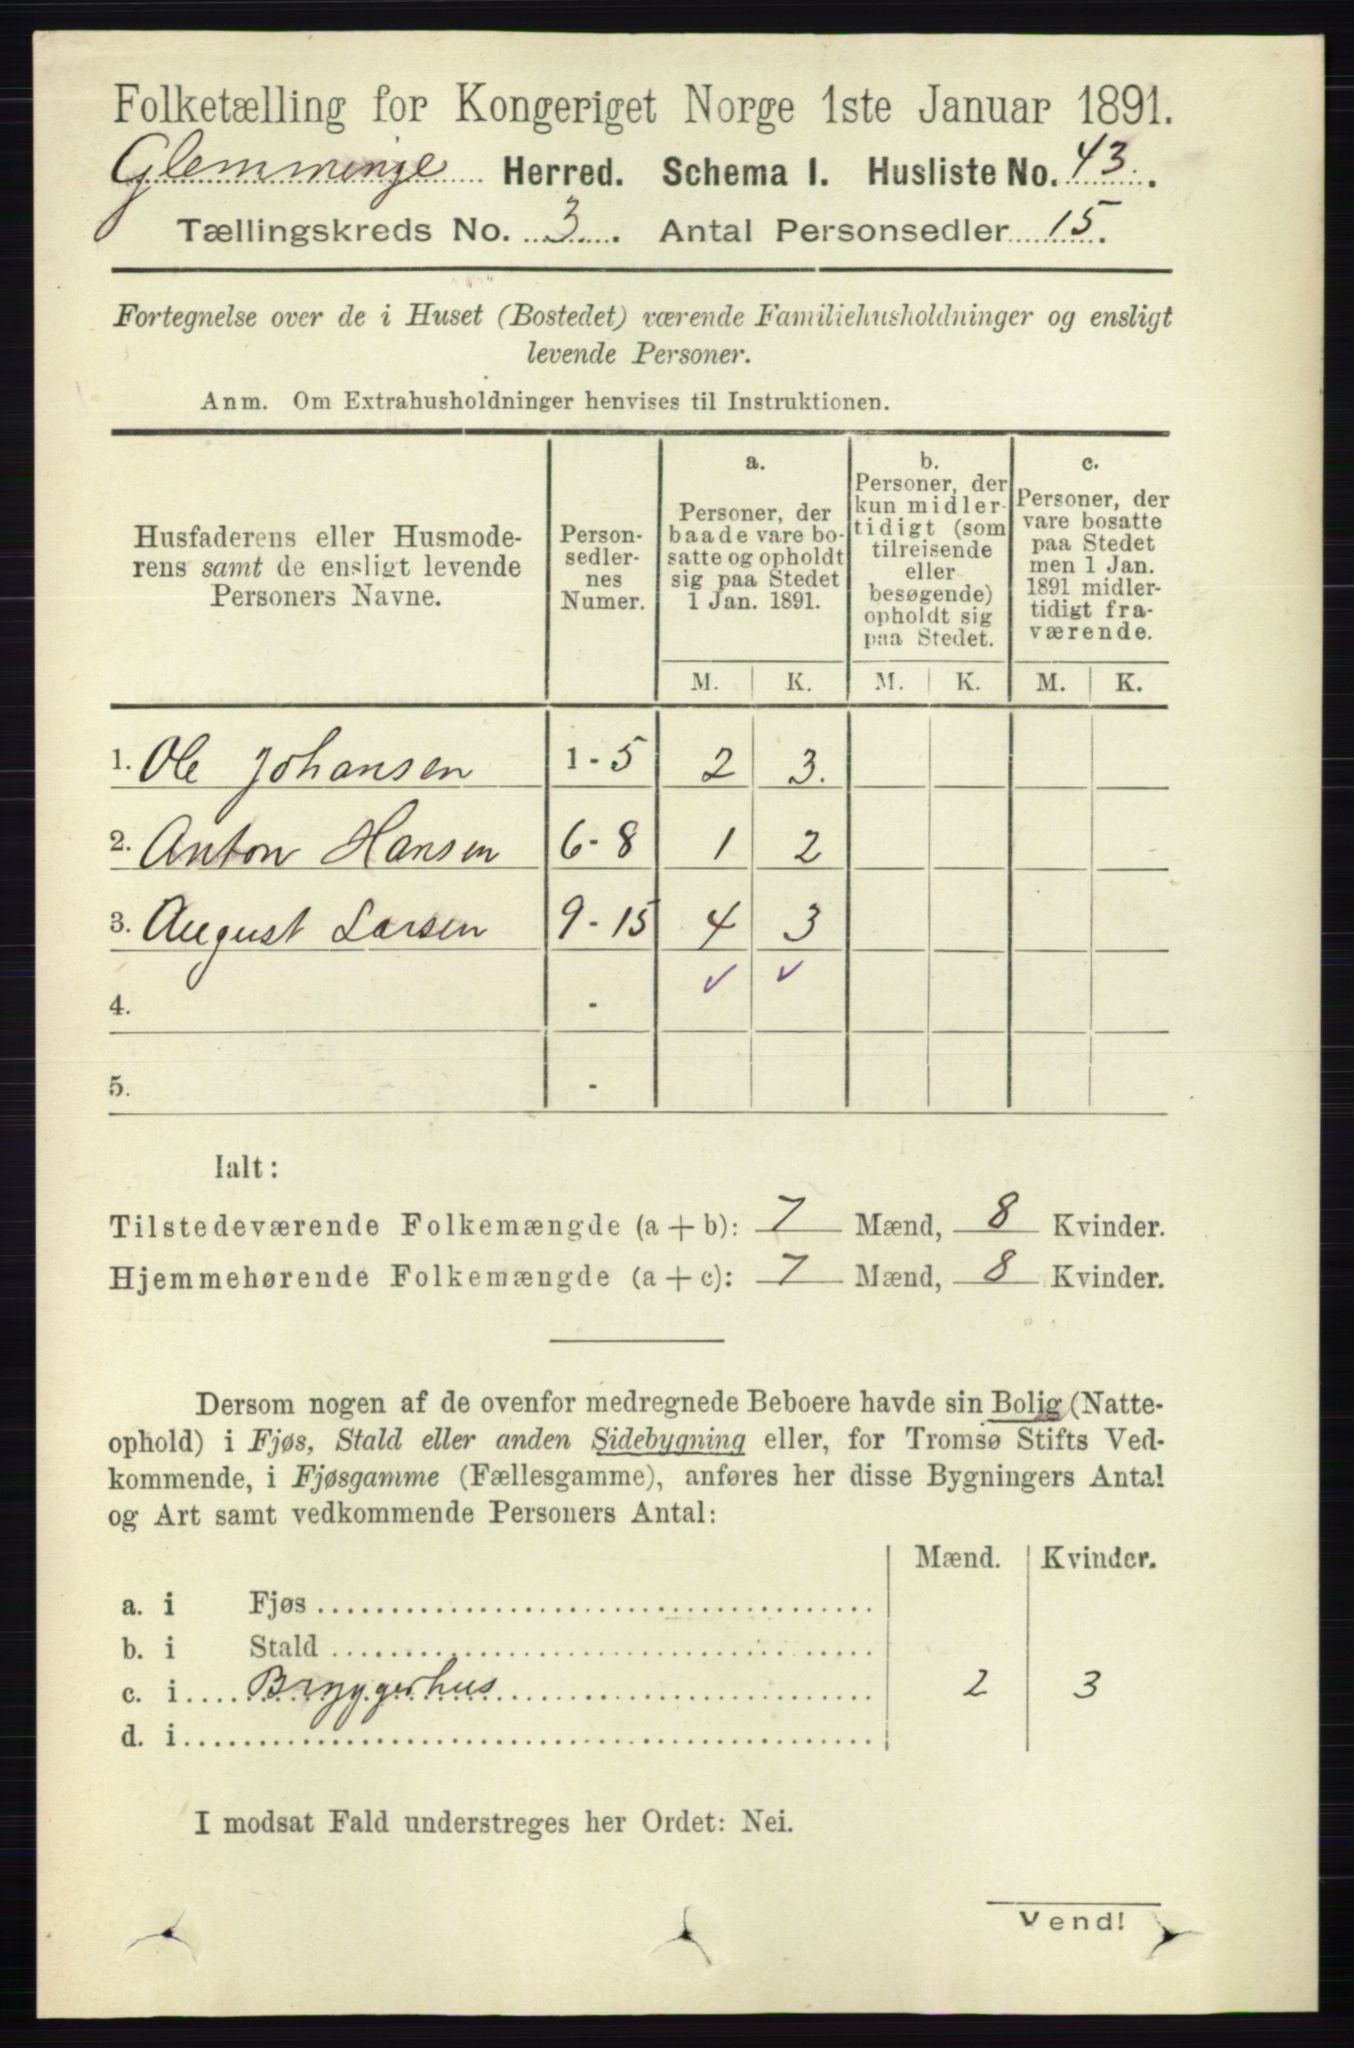 Folketælling for Kongeriget Norge 1ste Januar 1891.
Glemminge Herred. Schema I. Husliste No. 43.
Tællingskreds No. 3. Antal Personsedler 15.
Fortegnelse over de i Huset (Bostedet) værende Familiehusholdninger og ensligt
levende Personer.
Anm. Om Extrahusholdninger henvises til Instruktionen.
Husfaderens eller Husmode-
rens samt de ensligt levende
Personers Navne.
Person-
sedler-
nes
Numer.
a.
Personer, der
baade vare bo-
satte og opholdt
sig paa Stedet
1 Jan. 1891.
b.
Personer, der
kun midler-
tidigt (som
tilreisende
eller
besøgende)
opholdt sig
paa Stedet.
c.
Personer, der
vare bosatte
paa Stedet
men 1 Jan.
1891 midler-
tidigt fra-
værende.
M. K. M. K. M. K.
1. Ole Johansen 1-5 2 3.
2. Anton Hansen 6-8 1 2
3. August Larsen 9-15 4 3
✓ ✓
4. -
5. -
Ialt:
Tilstedeværende Folkemængde (a + b): 7 Mænd, 8 Kvinder.
Hjemmehørende Folkemængde (a + c): 7 Mænd, 8 Kvinder.
Dersom nogen af de ovenfor medregnede Beboere havde sin Bolig (Natte-
ophold) i Fjøs, Stald eller anden Sidebygning eller, for Tromsø Stifts Ved-
kommende, i Fjøsgamme (Fællesgamme), anføres her disse Bygningers Antal
og Art samt vedkommende Personers Antal:
Mænd. Kvinder.
a. i Fjøs
b. i Stald
c. i Bryggerhus 2 3
d. i
I modsat Fald understreges her Ordet: Nei.
Vend!